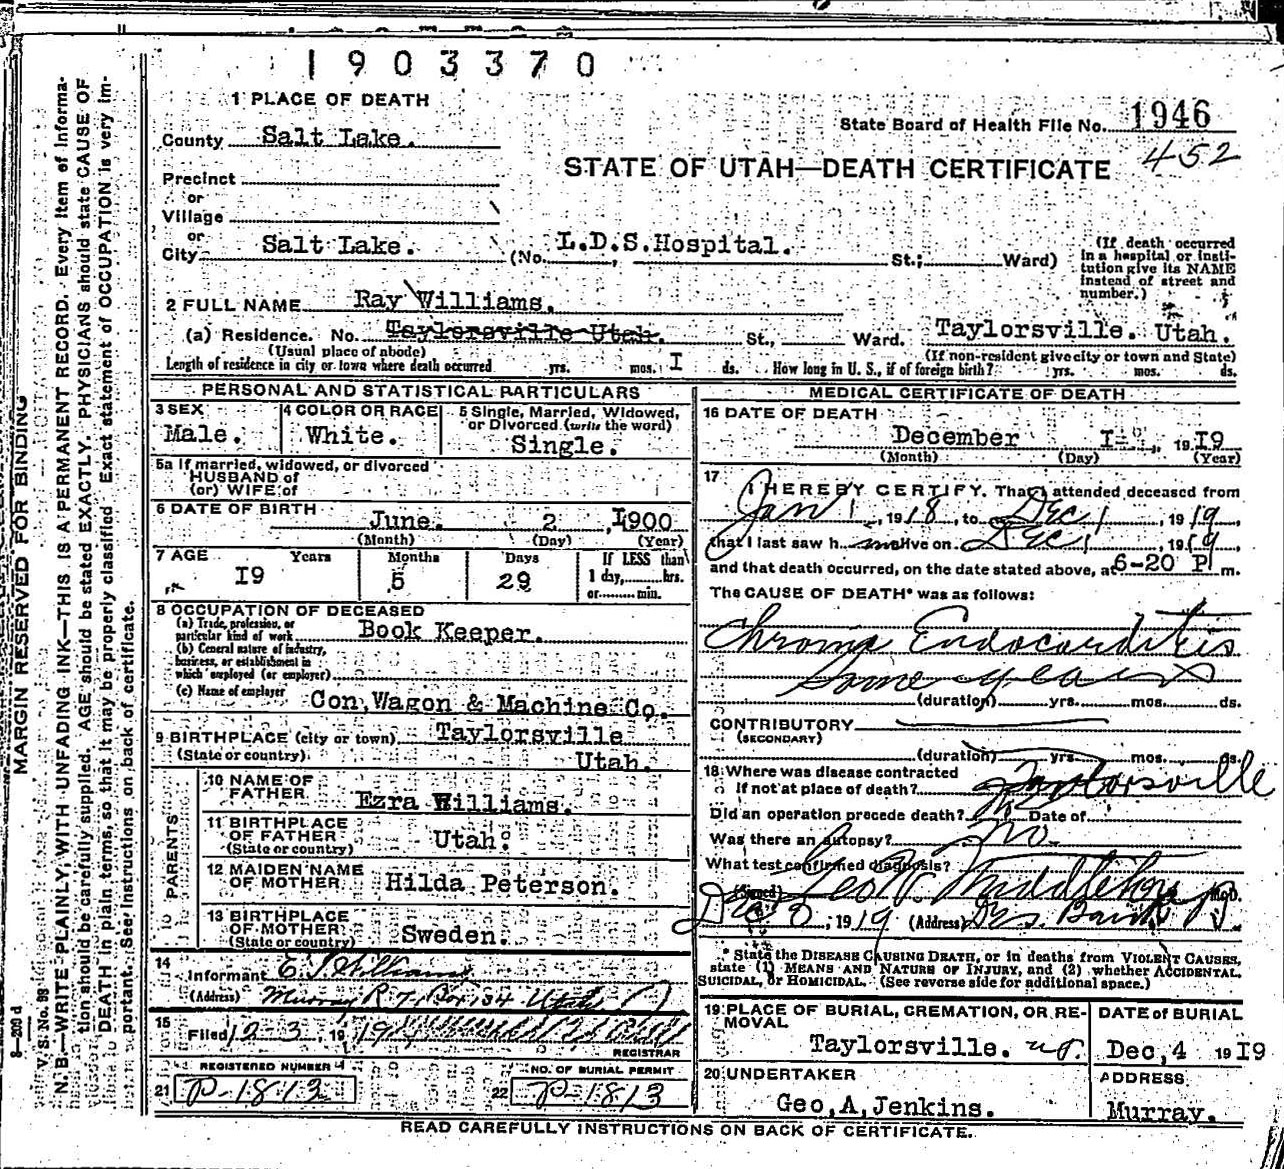 1903370
1 PLACE OF DEATH
State Board of Health File No. 1946
452
County Salt Lake.
STATE OF UTAH—DEATH CERTIFICATE
Precinct
or
Village
or
City Salt Lake. (No. L.D.S.Hospital. St.; Ward)
(If death occurred in a hospital or institution give its NAME instead of street and number.)
2 FULL NAME Ray Williams.
(a) Residence. No. Taylorsville Utah. St., Ward. Taylorsville. Utah.
(Usual place of abode) (If non-resident give city or town and State)
Length of residence in city or town where death occurred yrs. mos. I ds. How long in U. S., if of foreign birth? yrs. mos. ds.
PERSONAL AND STATISTICAL PARTICULARS
3 SEX
Male.
4 COLOR OR RACE
White.
5 Single, Married, Widowed, or Divorced (write the word)
Single.
5a If married, widowed, or divorced
HUSBAND of
(or) WIFE of
6 DATE OF BIRTH
June. 2 1900
(Month) (Day) (Year)
7 AGE Years Months Days If LESS than
I9 5 29 1 day, hrs.
or min.
8 OCCUPATION OF DECEASED
(a) Trade, profession, or particular kind of work Book Keeper.
(b) General nature of industry, business, or establishment in which employed (or employer)
(c) Name of employer Con,Wagon & Machine Co.
9 BIRTHPLACE (city or town) Taylorsville
(State or country) Utah.
PARENTS
10 NAME OF FATHER Ezra Williams.
11 BIRTHPLACE OF FATHER (State or country) Utah.
12 MAIDEN NAME OF MOTHER Hilda Peterson.
13 BIRTHPLACE OF MOTHER (State or country) Sweden.
14
Informant E. T. Williams
(Address) Murray R 7, Box 134 Utah
15
Filed 12-3, 19
REGISTRAR
REGISTERED NUMBER NO. OF BURIAL PERMIT
21 P-1813 22 P-1813
MEDICAL CERTIFICATE OF DEATH
16 DATE OF DEATH
December I , 19I9
(Month) (Day) (Year)
17
I HEREBY CERTIFY, That I attended deceased from
Jan 1, 1918, to Dec 1, 1919,
that I last saw him alive on Dec 1, 1919
and that death occurred, on the date stated above, at 6-20 P m.
The CAUSE OF DEATH* was as follows:
Chronic Endocarditis
Some years
(duration) yrs. mos. ds.
CONTRIBUTORY
(SECONDARY)
(duration) yrs. mos. ds.
18 Where was disease contracted
If not at place of death? Taylorsville
Did an operation precede death? No Date of
Was there an autopsy? No.
What test confirmed diagnosis?
(Signed) Geo W. Middleton M.D.
Dec , 1919 (Address)
* State the DISEASE CAUSING DEATH, or in deaths from VIOLENT CAUSES, state (1) MEANS AND NATURE OF INJURY, and (2) whether ACCIDENTAL, SUICIDAL, or HOMICIDAL. (See reverse side for additional space.)
19 PLACE OF BURIAL, CREMATION, OR REMOVAL
Taylorsville. ut.
DATE of BURIAL
Dec, 4 19I9
20 UNDERTAKER
Geo,A,Jenkins.
ADDRESS
Murray.
READ CAREFULLY INSTRUCTIONS ON BACK OF CERTIFICATE.
MARGIN RESERVED FOR BINDING
V. S. No. 98
N. B.—WRITE PLAINLY, WITH UNFADING INK—THIS IS A PERMANENT RECORD. Every item of information should be carefully supplied. AGE should be stated EXACTLY. PHYSICIANS should state CAUSE OF DEATH in plain terms, so that it may be properly classified. Exact statement of OCCUPATION is very important. See instructions on back of certificate.